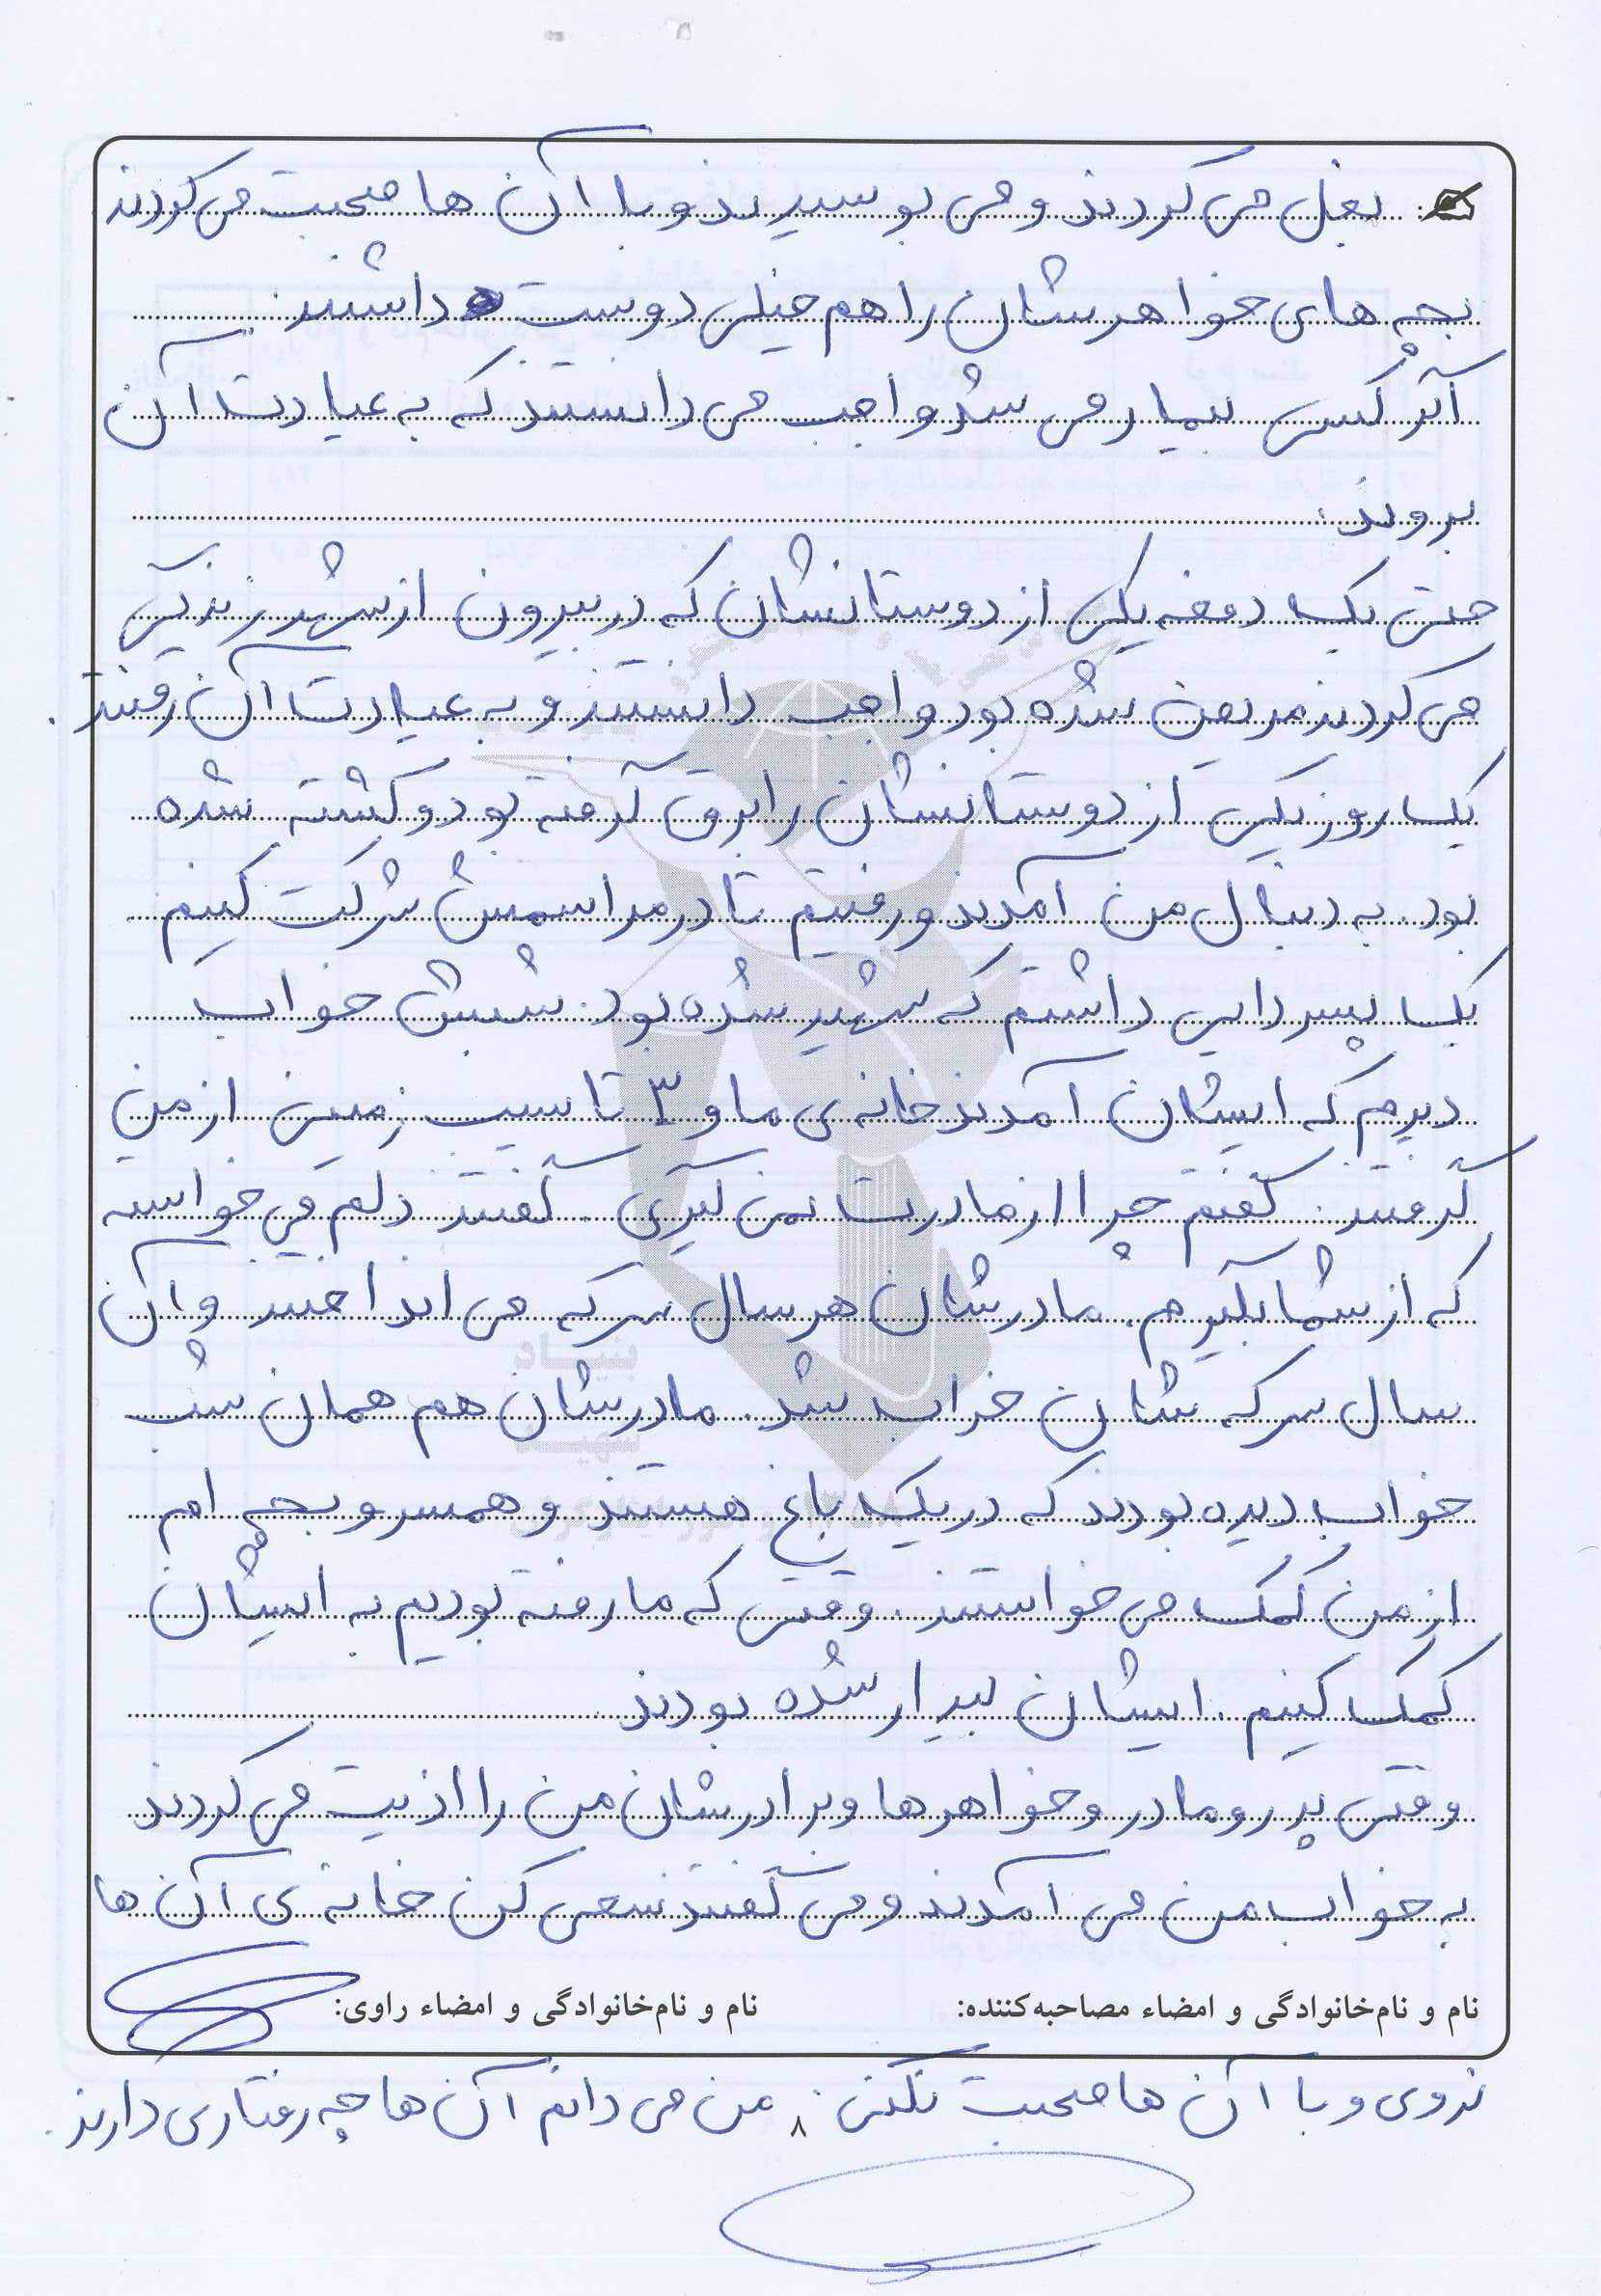 بغل می کردند و می بوسیدند و با آن ها صحبت می کردند
بچه های خواهرشان را هم خیلی دوست داشتند.
اگر کسی بیمار می شد واجب می دانستند که به عیادت آن
بروند.
حتی یک دفعه یکی از دوستانشان که در بیرون از شهر زندگی
می کردند مریض شده بود واجب دانستند و به عیادت آن رفتند.
یک روز یکی از دوستانشان را برق گرفته بود و کشته شده
بود. به دنبال من آمدند و رفتیم تا در مراسمش شرکت کنیم
یک پسر دایی داشتم که شهید شده بود. شبش خواب
دیدم که ایشان آمدند خانه ی ما و ۳ تا سیب زمینی از من
گرفتند. گفتم چرا از مادرت نمی گیری. گفتند دلم می خواسته
که از شما بگیرم. مادرشان هر سال سرکه می انداختند و آن
سال سرکه شان خراب شد. مادرشان هم همان شب
خواب دیده بودند که در یک باغ هستند و همسر و بچه ام
از من کمک می خواستند. وقتی که ما رفته بودیم به ایشان
کمک کنیم. ایشان بیدار شده بودند.
وقتی پدر و مادر و خواهرها و برادرشان من را اذیت می کردند
به خواب من می آمدند و می گفتند سعی کن خانه ی آن ها
نام و نام‌خانوادگی و امضاء مصاحبه‌کننده: نام و نام‌خانوادگی و امضاء راوی:
نروی و با آن ها صحبت نکنی. من می دانم آن ها چه رفتاری دارند.
۸
بنیاد
شهید